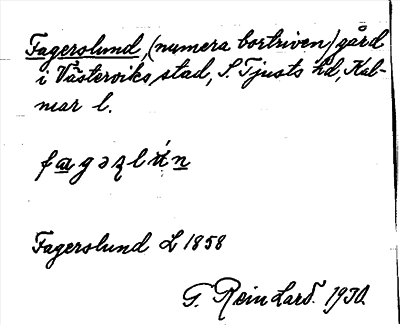 Fagerslund, (numera bortriven) gård
i Västerviks stad, S. Tjusts hd, Kal-
mar l.
Fagerslund L 1858
T. Reinhard. 1930.